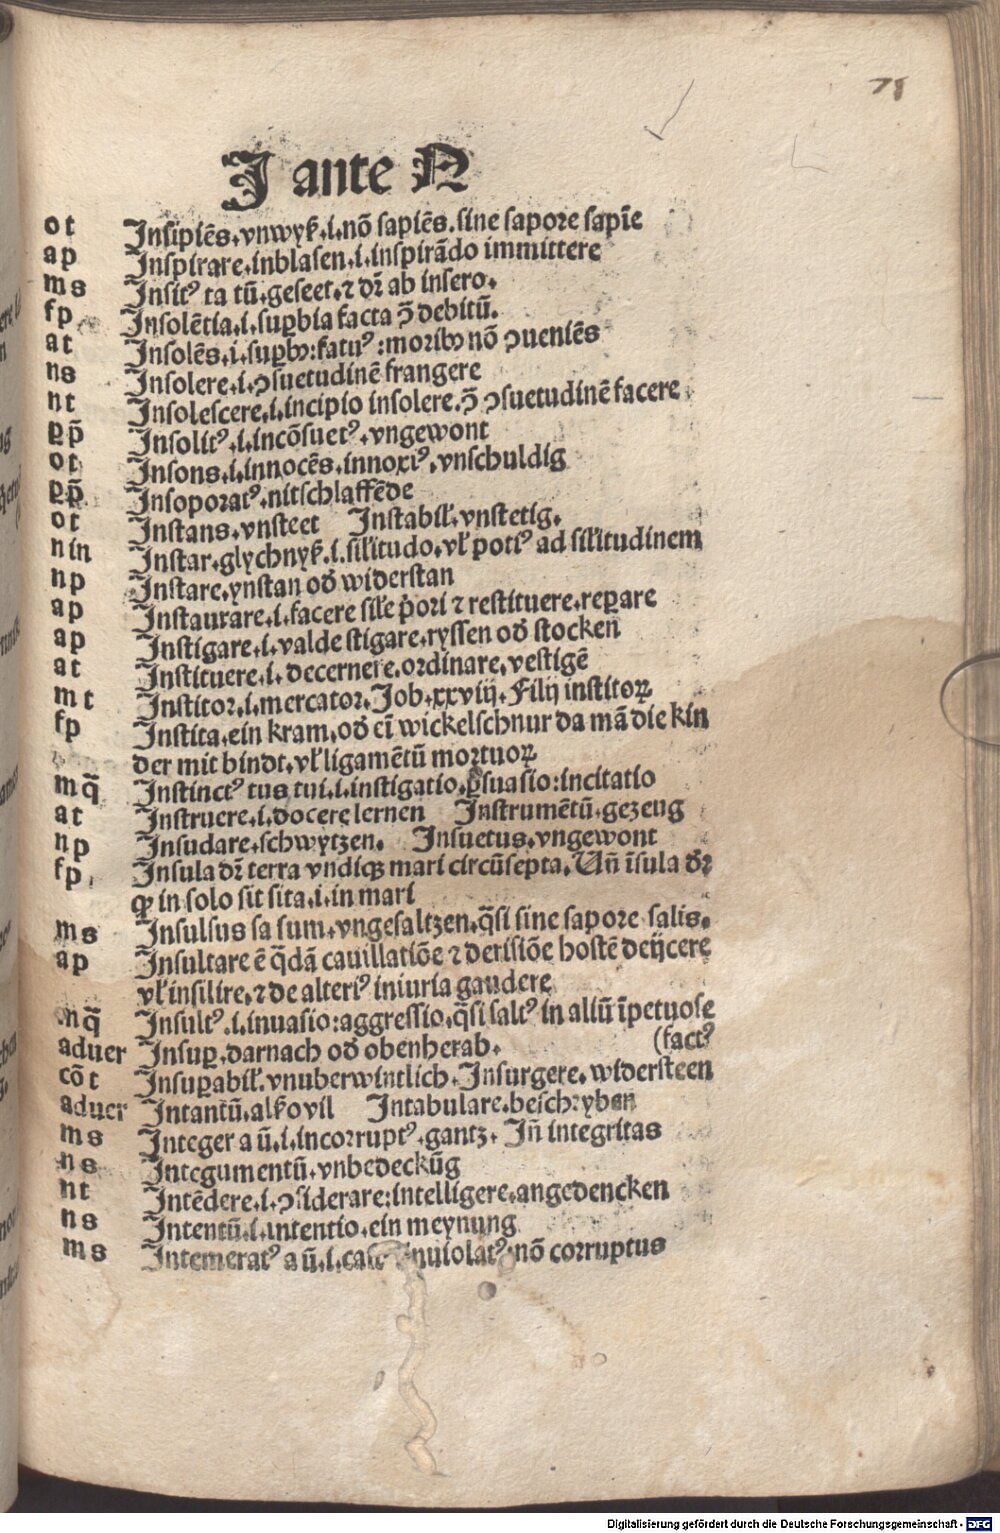 71
I ante N
ot Insipiēs.vnwyß.i.nō sapiēs.sine sapore sapīe
ap Inspirare.inblasen.i.inspirādo immittere
ms Insitꝰ ta tū.geseet.⁊ dr̄ ab insero.
fp Insolētia.i.suꝑbia facta ꝯ̄ debitū.
at Insolēs.i.suꝑbꝰ:fatuꝰ:moribꝰ nō ꝯueniēs
ns Insolere.i.ꝯsuetudinē frangere
nt Insolescere.i.incipio insolere.ꝯ̄ ꝯsuetudinē facere
ꝑp̄ Insolitꝰ.i.incōsuetꝰ.vngewont
ot Insons.i.innocēs.innoxiꝰ.vnschuldig
ꝑp̄ Insoporatꝰ.nitschlaffēde
ot Instans.vnsteet Instabil̄.vnstetig.
nin Instar.glychnyß.i.sil̄itudo.vl̄ potiꝰ ad sil̄itudinem
np Instare.ynstan od̄ widerstan
ap Instaurare.i.facere sil̄e p̄ori ⁊ restituere.reꝑare
ap Instigare.i.valde stigare.ryssen od̄ stocken
at Instituere.i.decernere.ordinare.vestigē
mt Institor.i.mercator.Job.xxviij.Filij institoꝝ
fp Instita.ein kram.od̄ eī wickelschnur da mā die kin
der mit bindt.vl̄ ligamētū mortuoꝝ
mq̄ Instinctꝰ tus tui.i.instigatio.ꝑsuasio:incitatio
at Instruere.i.docere lernen Instrumētū.gezeug
np Insudare.schwytzen. Insuetus.vngewont
fp Insula dr̄ terra vndiqꝫ mari circūsepta.Vn̄ īsula dr̄
ꝙ in solo sit sita.i.in mari
ms Insulsus sa sum.vngesaltzen.q̄si sine sapore salis.
ap Insultare ē q̄dā cauillatiōe ⁊ derisiōe hostē deijcere
vl̄ insilire.⁊ de alteriꝰ iniuria gaudere
nq̄ Insultꝰ.i.inuasio:aggressio.q̄si saltꝰ in aliū īpetuose
aduer Insuꝑ.darnach od̄ obenherab. (factꝰ
cōt Insuꝑabil̄.vnuberwintlich.Insurgere.widersteen
aduer Intantū.alßovil Intabulare.beschryben
ms Integer a ū.i.incorruptꝰ.gantz. In̄ integritas
ns Integumentū.vnbedeckūg
nt Intēdere.i.ꝯsiderare:intelligere.angedencken
ns Intentū.i.intentio.ein meynung
ms Intemeratꝰ a ū.i.cast inuiolatꝰ nō corruptus
Digitalisierung gefördert durch die Deutsche Forschungsgemeinschaft - DFG